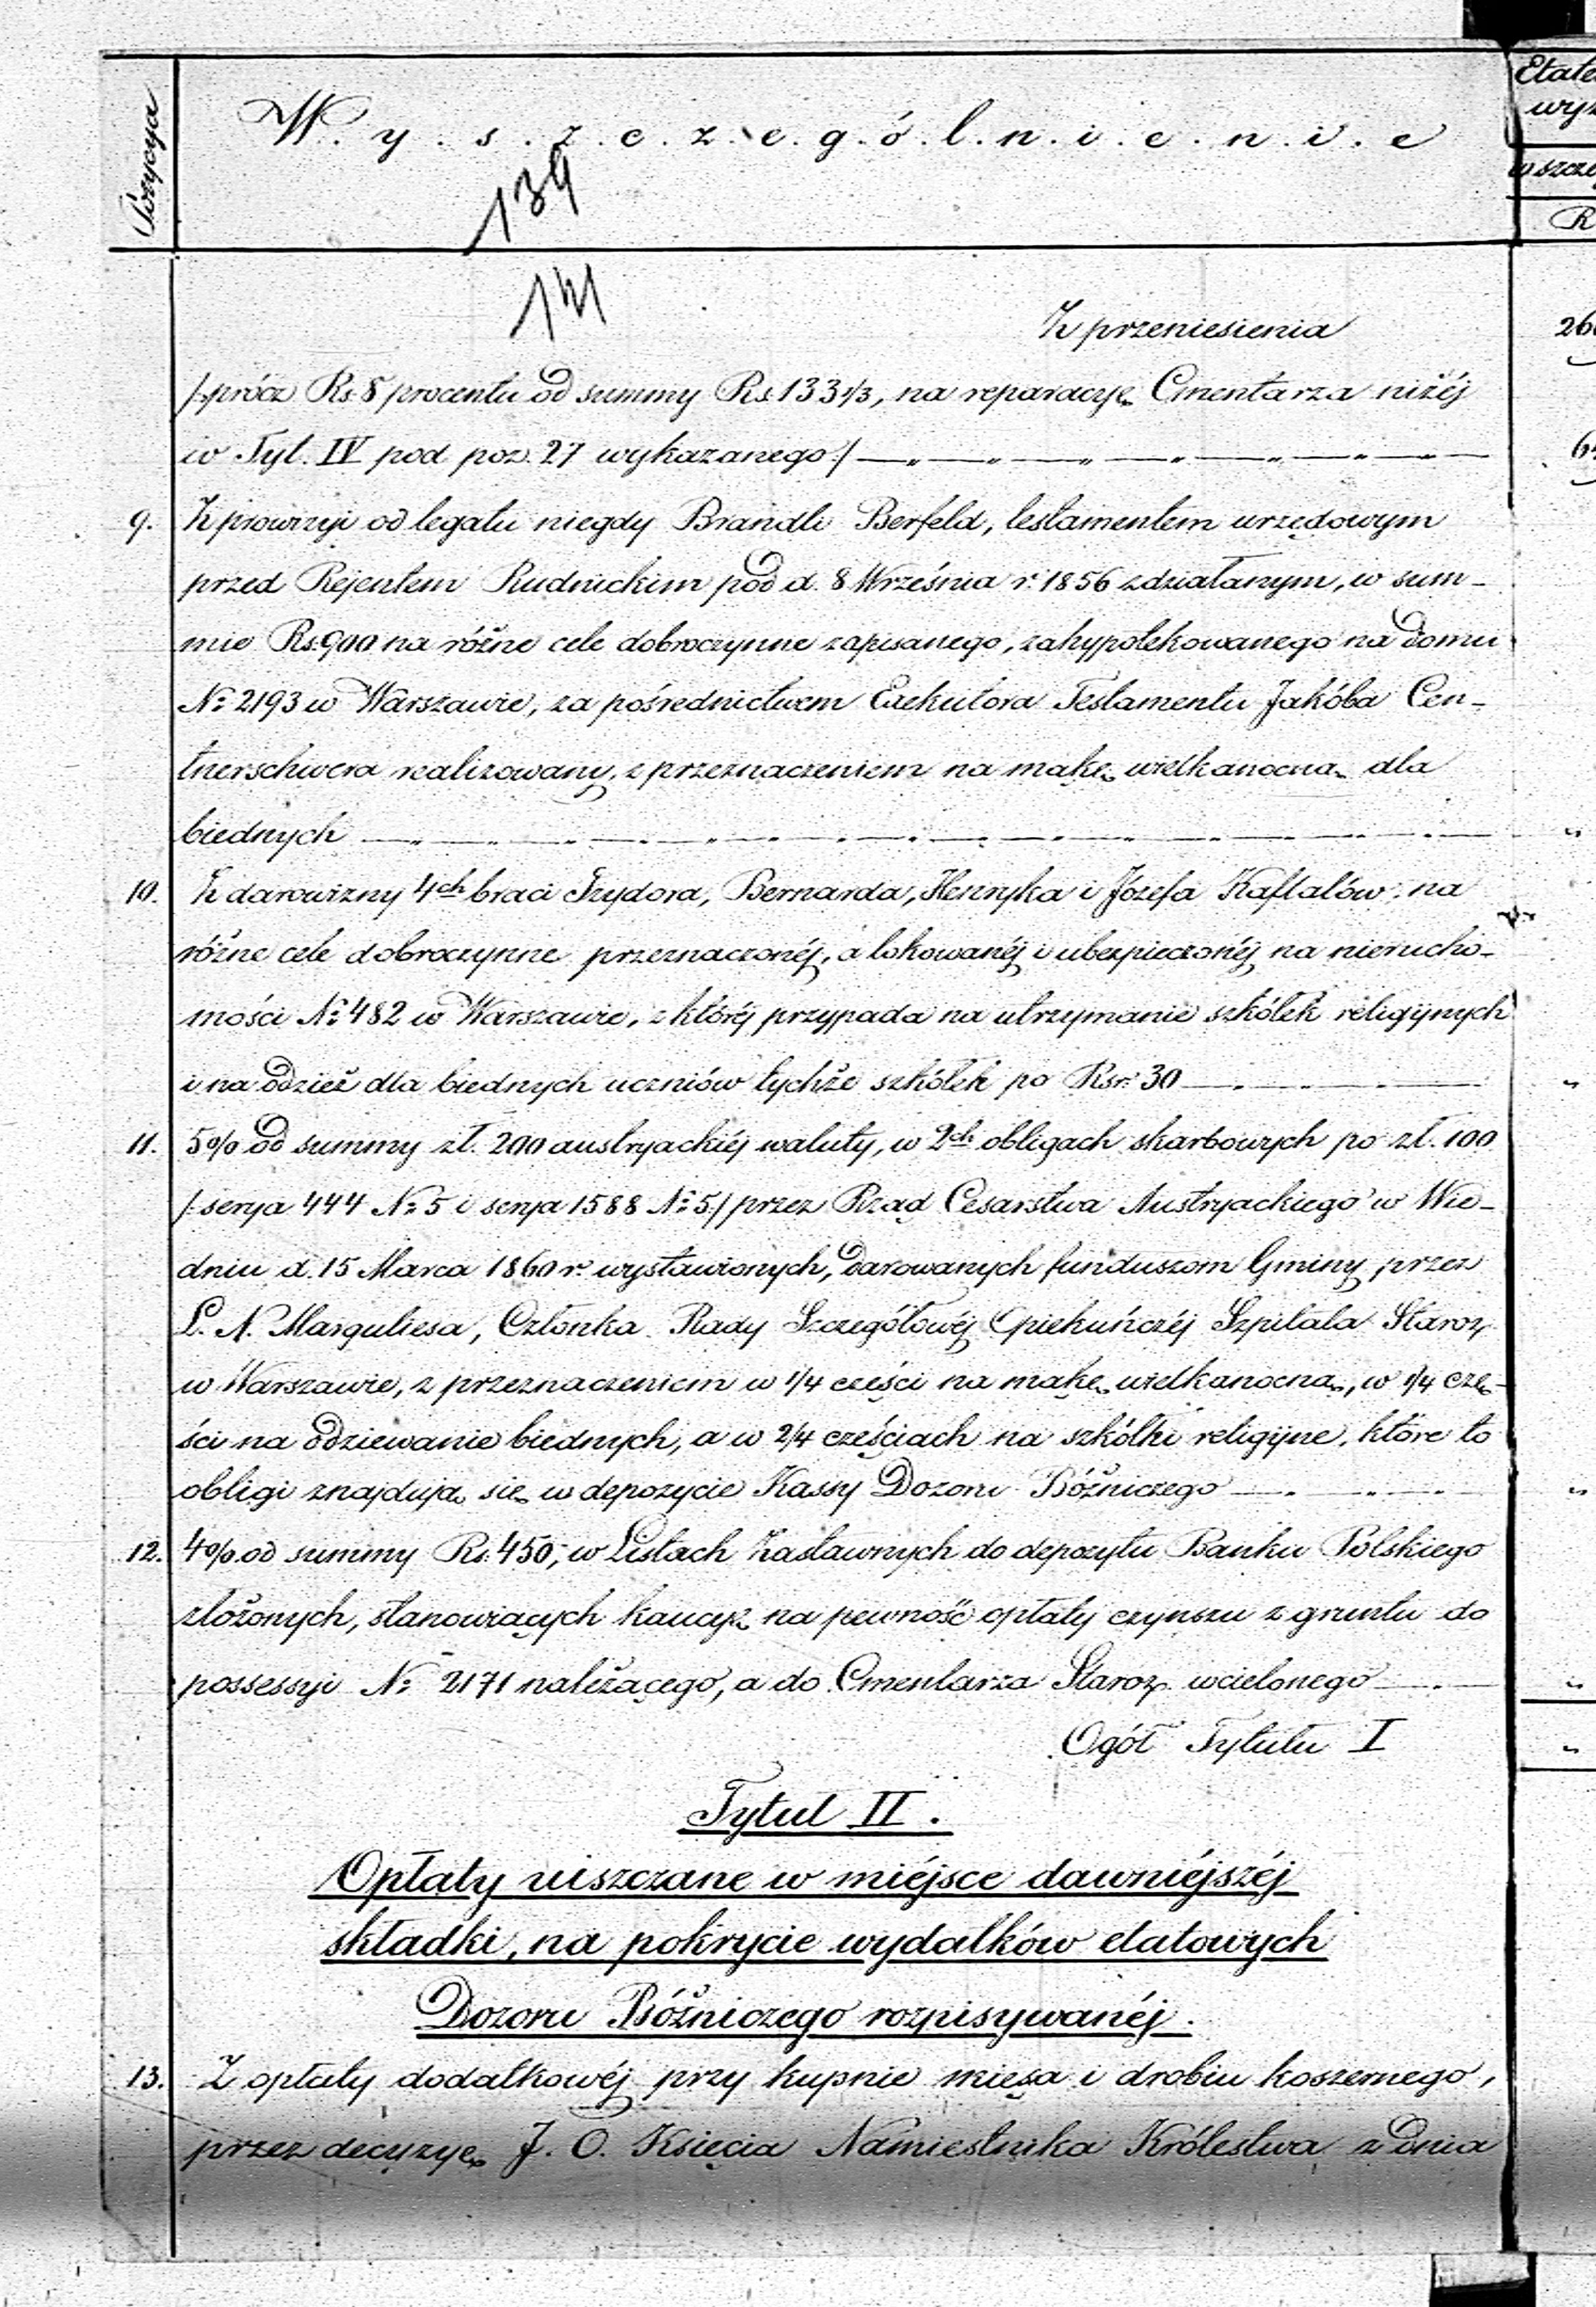 Pozycya
W.y.s.z.c.z.e.g.ó.l.n.i.e.n.i.e
139
141
Z przeniesienia
/:prócz Rs. 8 procentu od summy Rs. 133 1/3, na reparacyę Cmentarza niżéj
w Tyt. IV pod poz. 27 wykazanego:/
9. Z prowizyi od legatu niegdy Brandli Berfeld, testamentem urzędowym
przed Rejentem Rudnickim pod d. 8 Września r. 1856 zdziałanym, w sum-
mie Rs. 900 na różne cele dobroczynne zapisanego, zahypotekowanego na domu
No 2193 w Warszawie, za pośrednictwem Exekutora Testamentu Jakóba Cen-
tnerschwera realizowany, z przeznaczeniem na mąkę wielkanocną dla
biednych
10. Z darowizny 4ch braci Izydora, Bernarda, Henryka i Józefa Kaftalów, na
różne cele dobroczynne przeznaczonéj, a lokowanéj i ubezpieczonéj na nierucho-
mości No 482 w Warszawie, z któréj przypada na utrzymanie szkółek religijnych
i na odzież dla biednych uczniów tychże szkółek po Rsr. 30
11. 5% od summy zł. 200 austryackiéj waluty, w 2ch obligach skarbowych po zł. 100
/:serya 444 No 5 i serya 1588 No 5:/ przez Rząd Cesarstwa Austryackiego w Wie-
dniu d. 15 Marca 1860 r. wystawionych, darowanych funduszom Gminy przez
L. N. Marguliesa, Członka Rady Szczegółowéj Opiekuńczéj Szpitala Staroz.
w Warszawie, z przeznaczeniem w 1/4 części na mąkę wielkanocną, w 1/4 czę-
ści na odziewanie biednych, a w 2/4 częściach na szkółki religijne, które to
obligi znajdują się w depozycie Kassy Dozoru Bóżniczego
12. 4% od summy Rs. 450, w Listach Zastawnych do depozytu Banku Polskiego
złożonych, stanowiących kaucyę na pewność opłaty czynszu z gruntu do
possessyi No 2171 należącego, a do Cmentarza Staroz. wcielonego
Ogół Tytułu I
Tytuł II.
Opłaty uiszczane w miéjsce dawniéjszéj
składki, na pokrycie wydatków etatowych
Dozoru Bóżniczego rozpisywanéj.
13. Z opłaty dodatkowéj przy kupnie mięsa i drobiu koszernego,
przez decyzyę J. O. Księcia Namiestnika Królestwa z dnia